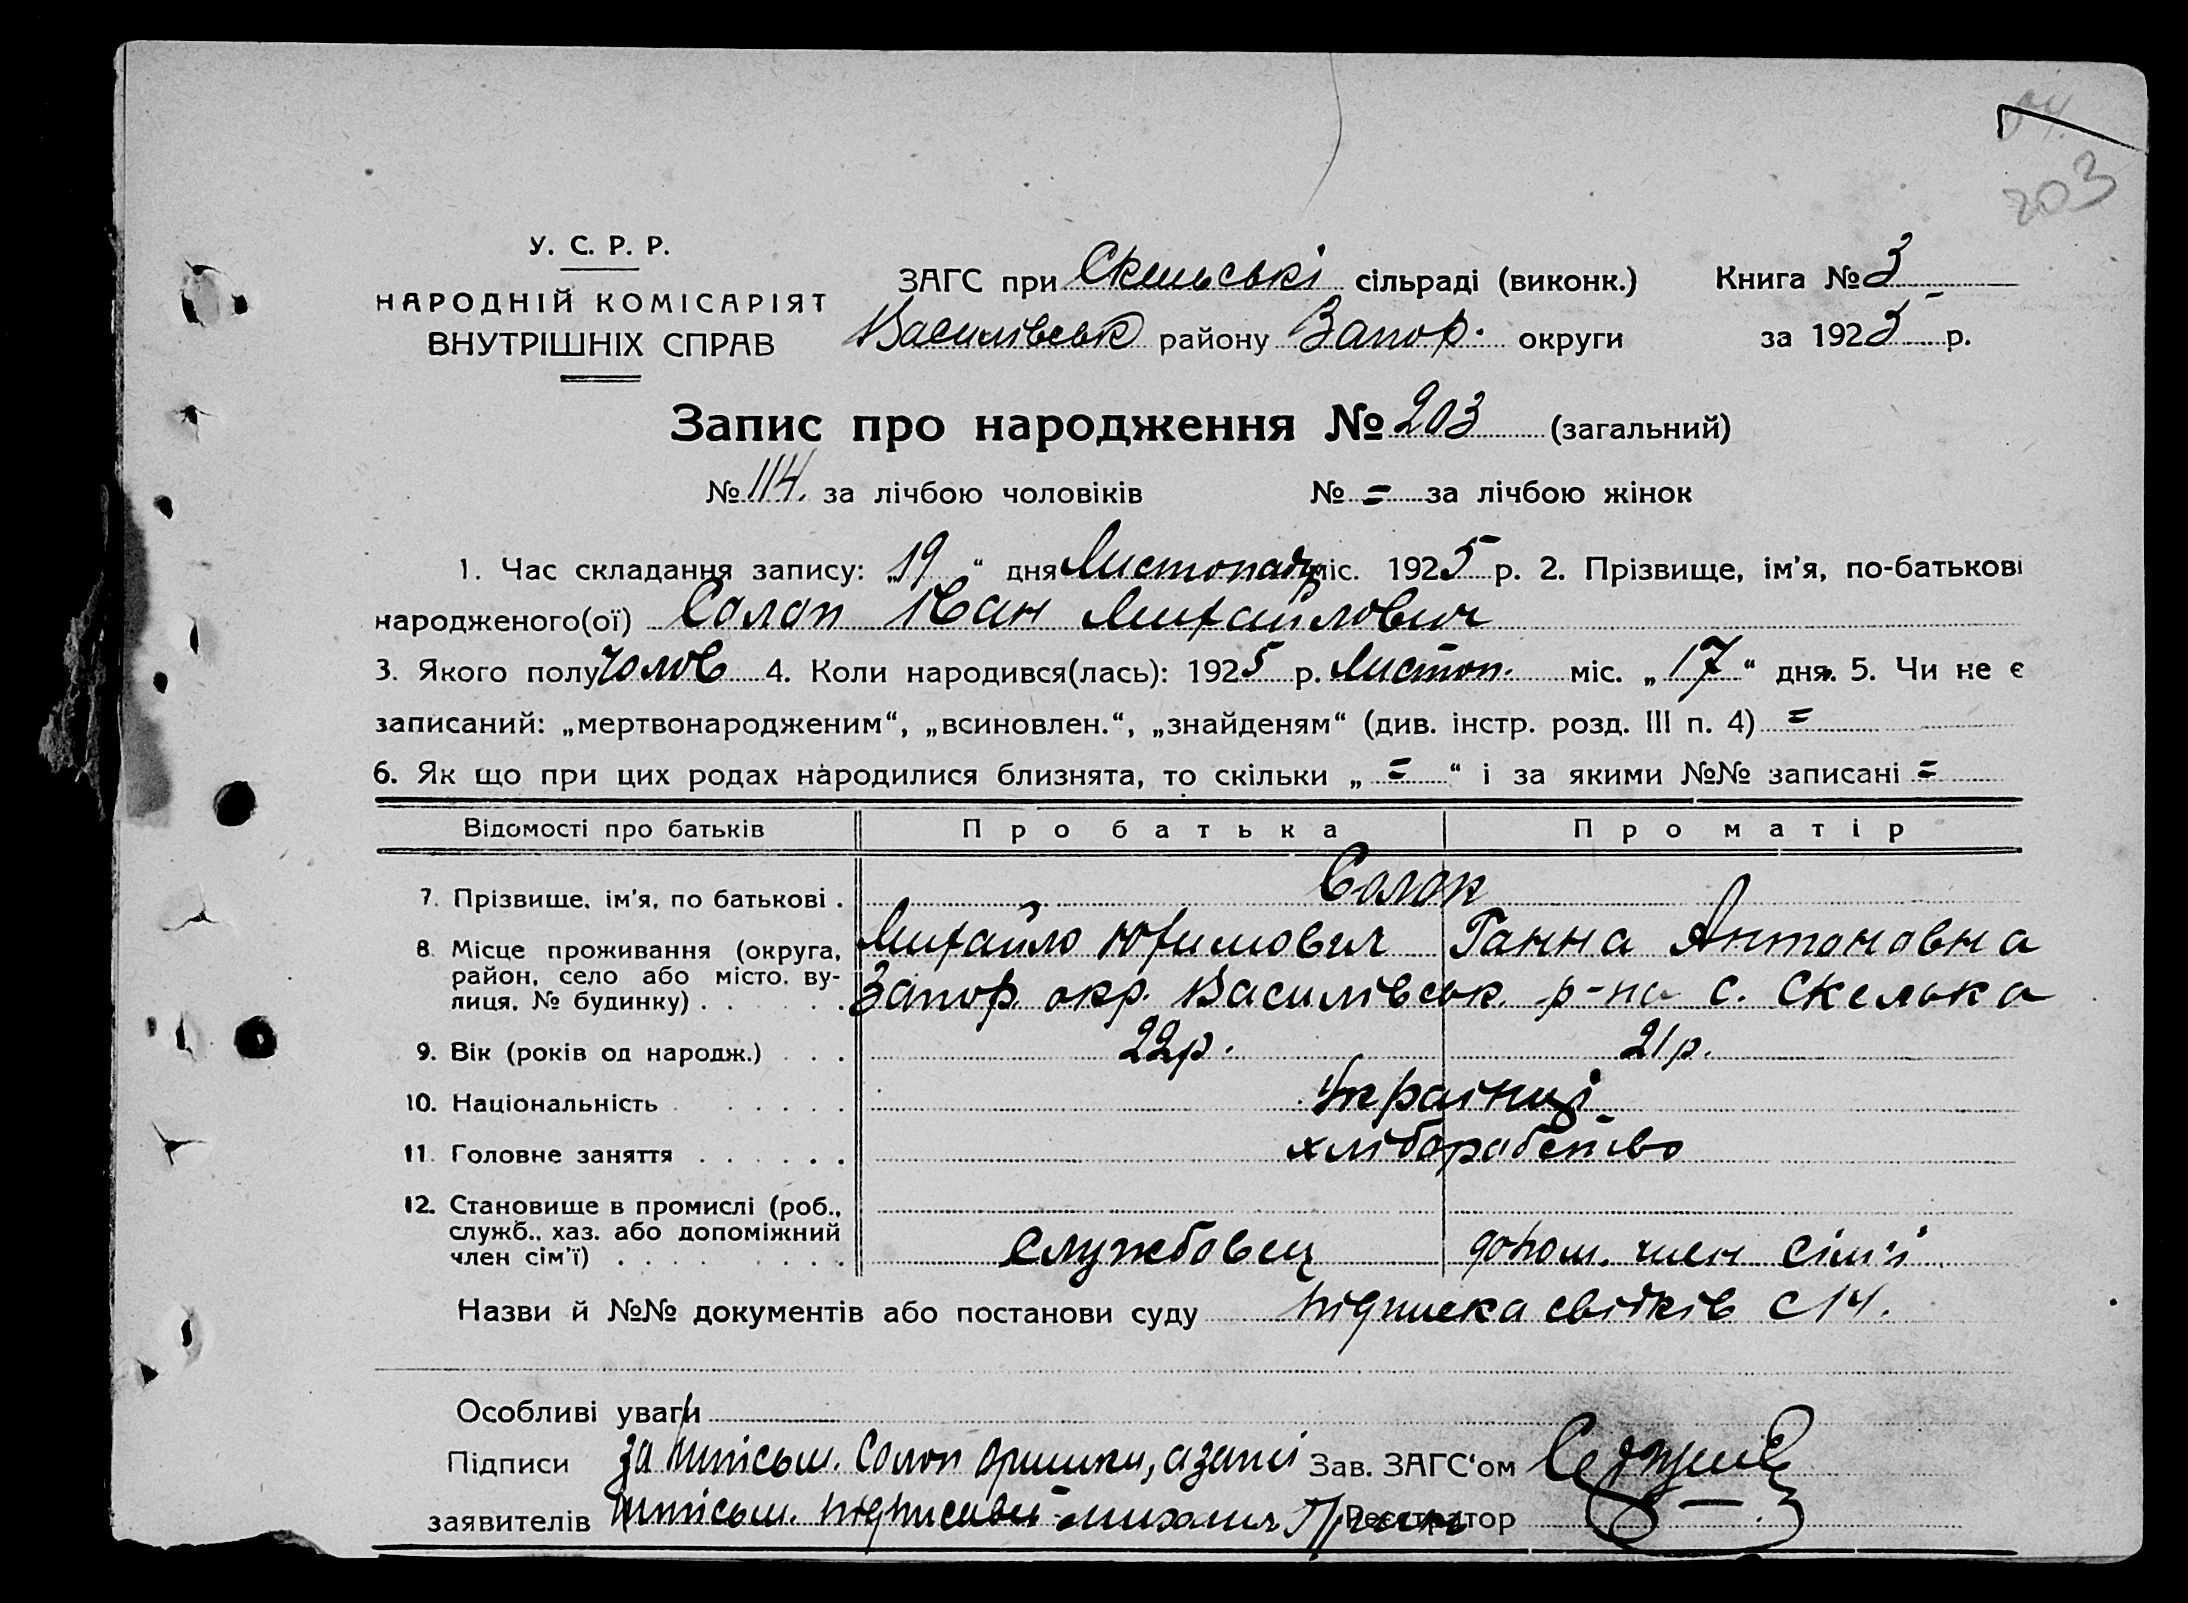 203
У. С. Р. Р.
НАРОДНІЙ КОМІСАРІЯТ
ВНУТРІШНІХ СПРАВ
ЗАГС при Скельські сільраді (виконк.) Книга № 3
Василівськ району Запор. округи за 1925 р.
Запис про народження № 203 (загальний)
№ 114. за лічбою чоловіків № = за лічбою жінок
1. Час складання запису: „19“ дня Листопаду міс. 1925 р. 2. Прізвище, ім'я, по-батькові
народженого(ої) Солоп Іван Михайлович
3. Якого полу чолов 4. Коли народився(лась): 1925 р. Листоп. міс. „17“ дня. 5. Чи не є
записаний: „мертвонародженим“, „всиновлен.“, „знайденям“ (див. інстр. розд. III п. 4) =
6. Як що при цих родах народилися близнята, то скільки „ = “ і за якими №№ записані =
Відомості про батьків Про батька Про матір
7. Прізвище, ім'я, по батькові . Солоп
Михайло Юхимович Ганна Антоновна
8. Місце проживання (округа, район, село або місто, ву-
лиця, № будинку) . . . . Запор. окр. Василівськ. р-на с. Скелька
9. Вік (років од народж.) . . . 22 р. 21 р.
10. Національність . . . . . . Українці
11. Головне заняття . . . . . . хліборобство
12. Становище в промислі (роб.,
служб., хаз. або допоміжний
член сім'ї) . . . . . . . службовец допом. член сім'ї
Назви й №№ документів або постанови суду підписка свідків с/ч.
Особливі уваги
Підписи за нипісьм. Солоп Зав. ЗАГС'ом
заявителів нипісьм. підписався Реєстратор